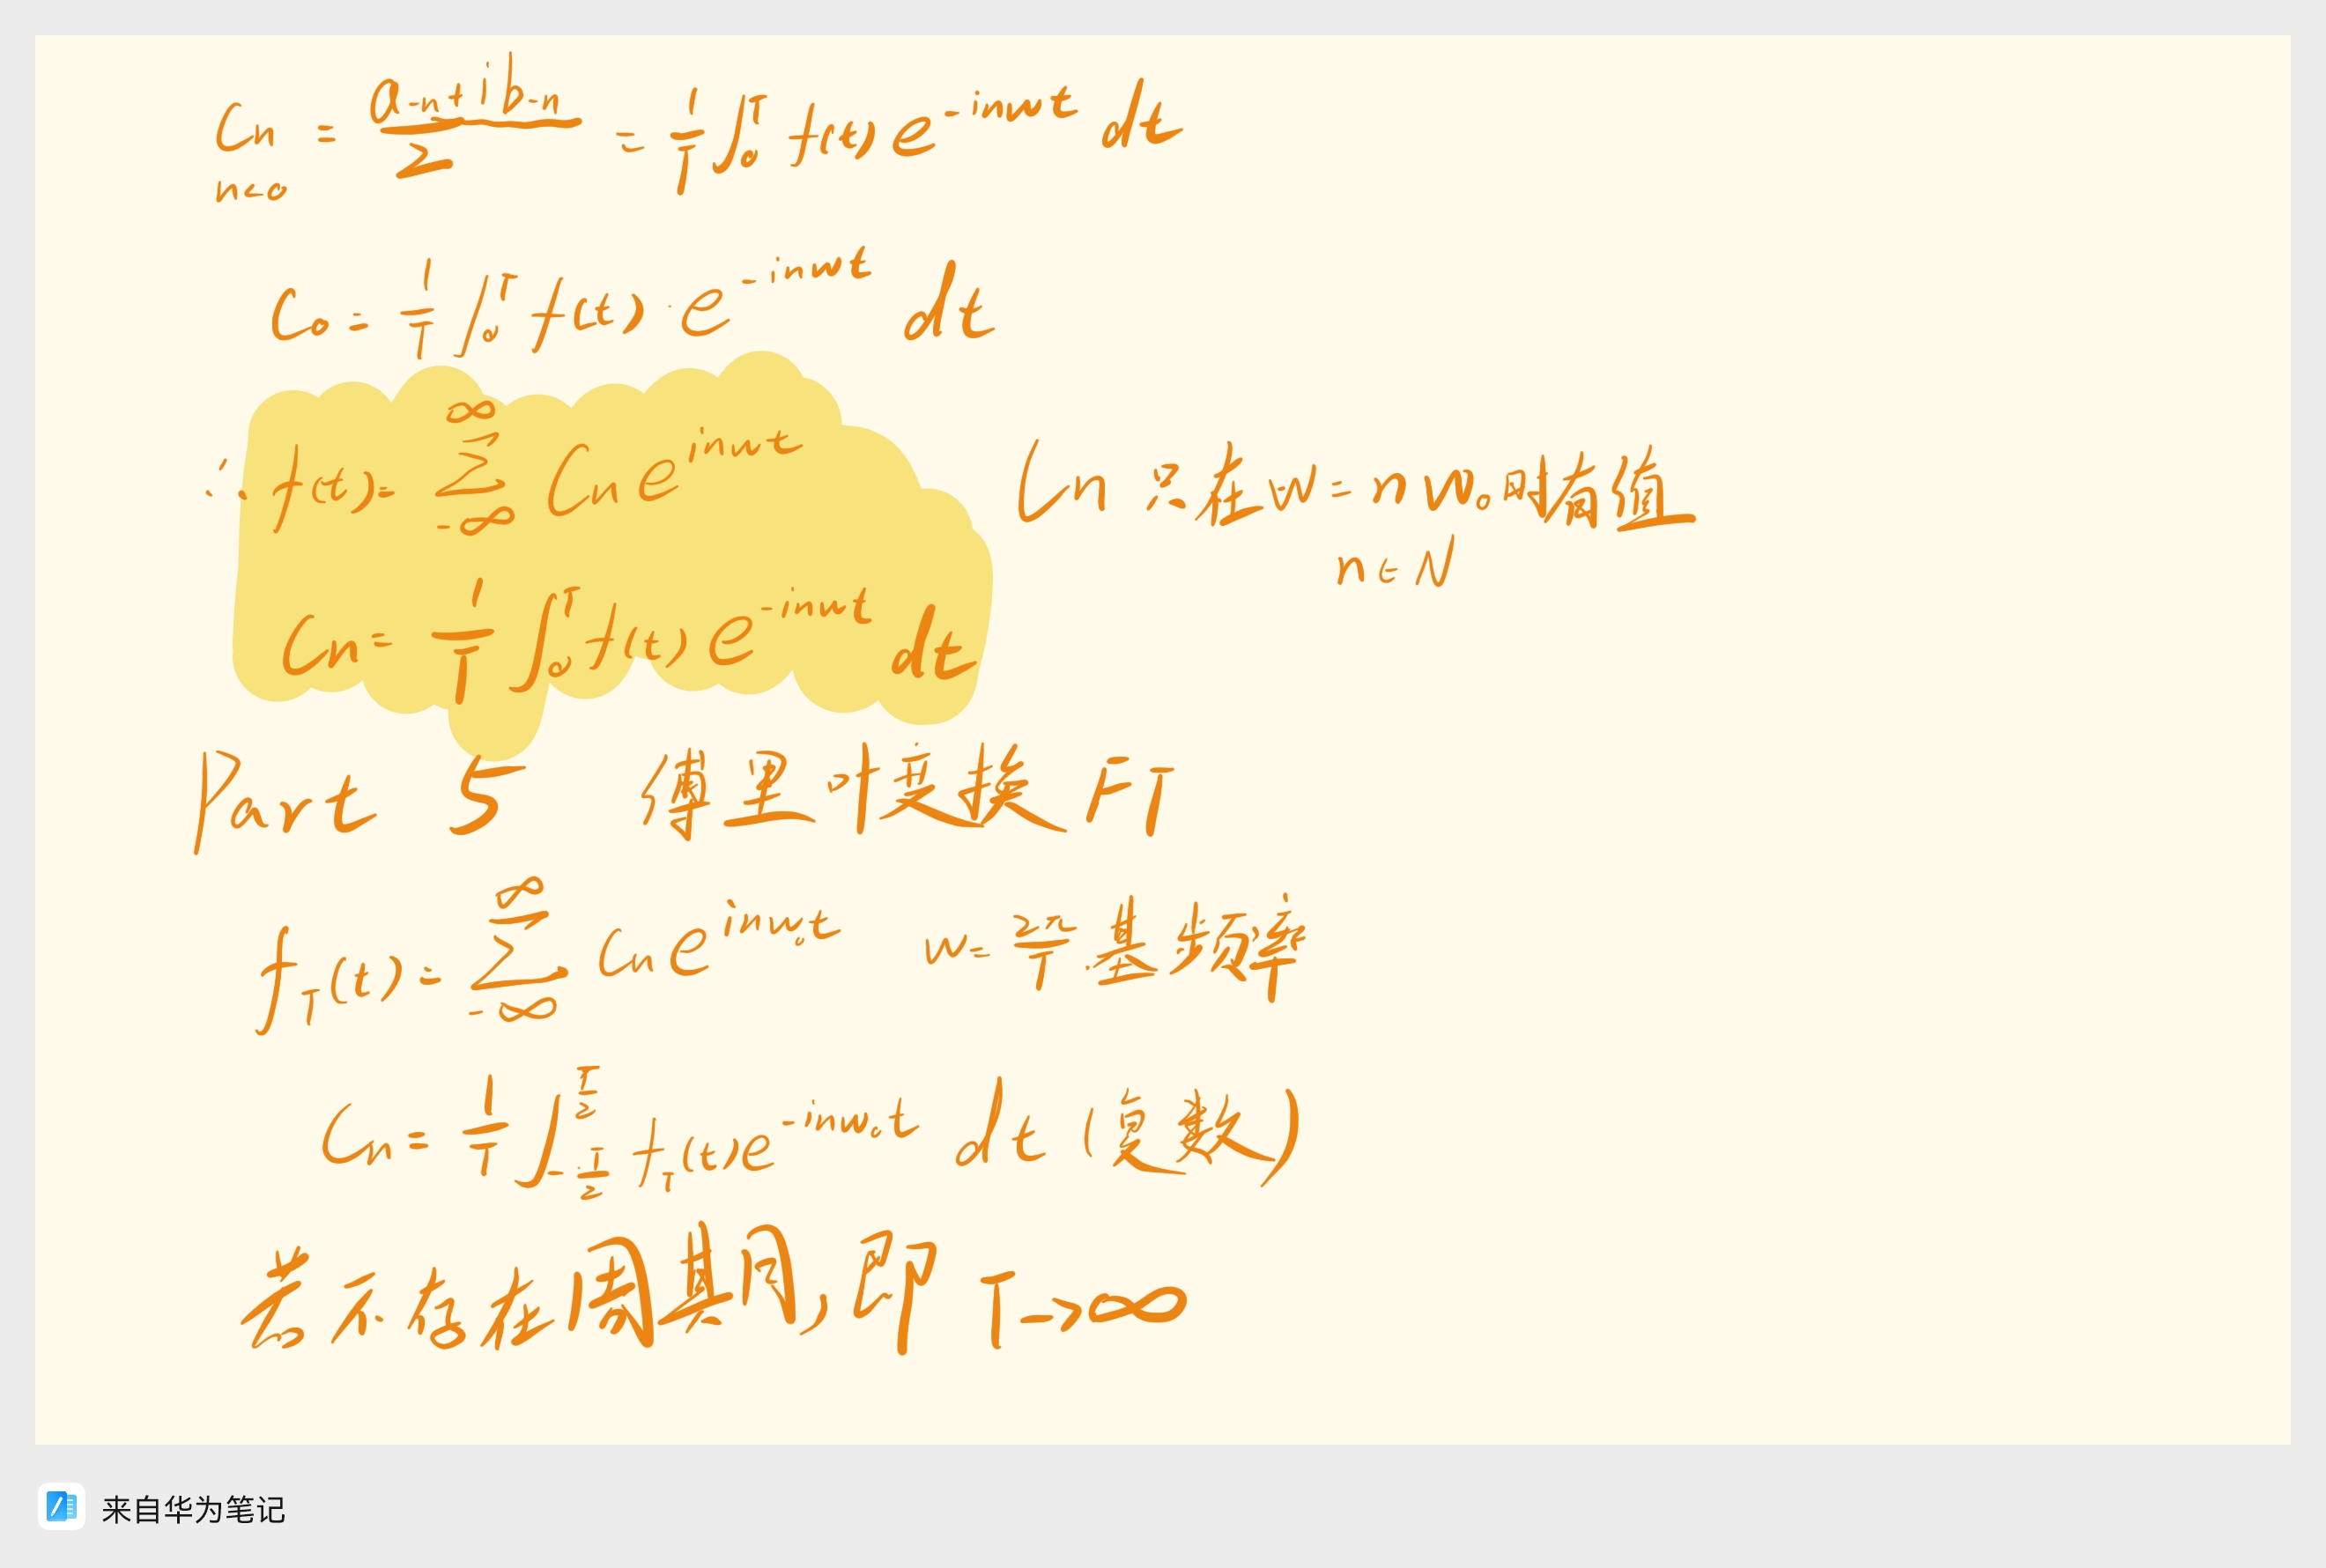 Cn = (a-n + i b-n)/2 = 1/T ∫₀ᵀ f(t) e^(-inwt) dt
n<0
C₀ = 1/T ∫₀ᵀ f(t) · e^(-inwt) dt
∴ f(t) = ∑_(-∞)^∞ Cn e^(inwt) Cn 是在 w = nw₀ 时的值
n ∈ N
Cn = 1/T ∫₀ᵀ f(t) e^(-inwt) dt
Part 5 傅里叶变换 FT
f_T(t) = ∑_(-∞)^∞ Cn e^(inw₀t) w = 2π/T 基频率
Cn = 1/T ∫_(-T/2)^(T/2) f_T(t) e^(-inw₀t) dt (复数)
若不存在周期, 即 T→∞
来自华为笔记